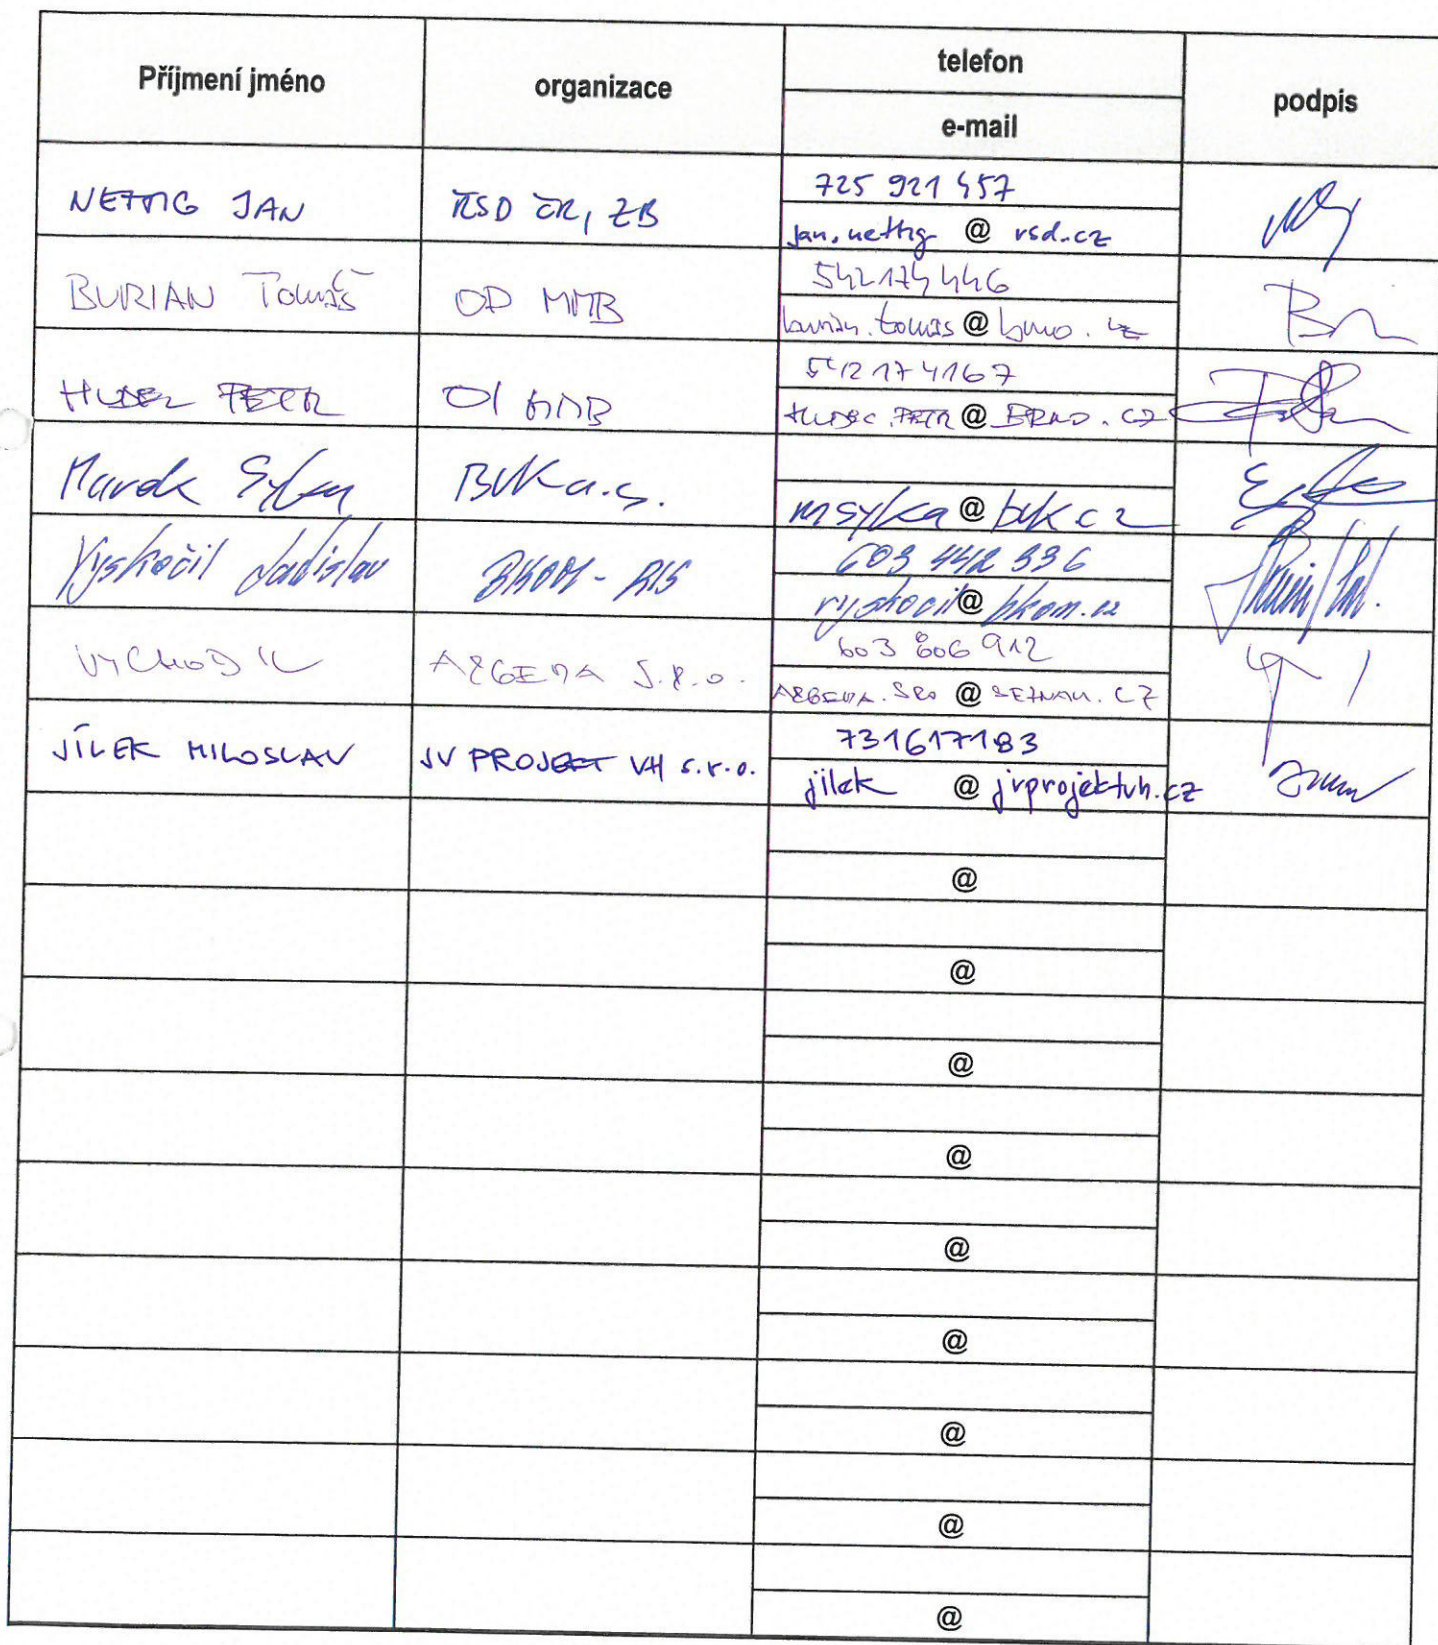 Příjmení jméno organizace telefon podpis
e-mail
NETTIG JAN ŘSD ČR, ZB 725 921 457
jan.nettig @ rsd.cz
BURIAN Tomáš OD MMB 542174446
burian.tomas @ brno.cz
HUDEC PETR OI MMB 542174167
HUDEC.PETR @ BRNO.CZ
Marek Sylva BVK a.s.
msylka @ bvk cz
Vyskočil Ladislav BKOM - RIS 603 442 336
vyskocil @ bkom.cz
VYCHODIL ARGEMA S.R.O. 603 806 912
ARGEMA.SRO @ SEZNAM.CZ
JÍLEK MILOSLAV JV PROJEKT VH s.r.o. 731617183
jilek @ jvprojektvh.cz
@
@
@
@
@
@
@
@
@